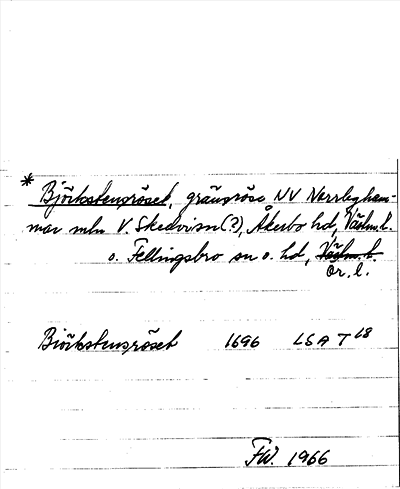 * Björkstensröset, gränsröse NV Norrlegham-
mar mln V. Skedvi sn (?), Åkerbo hd, Västm. l.
o. Fellingsbro sn o. hd, Västm. l.
Ör. l.
Biörkstensröset 1696 LSA T 18
FW. 1966